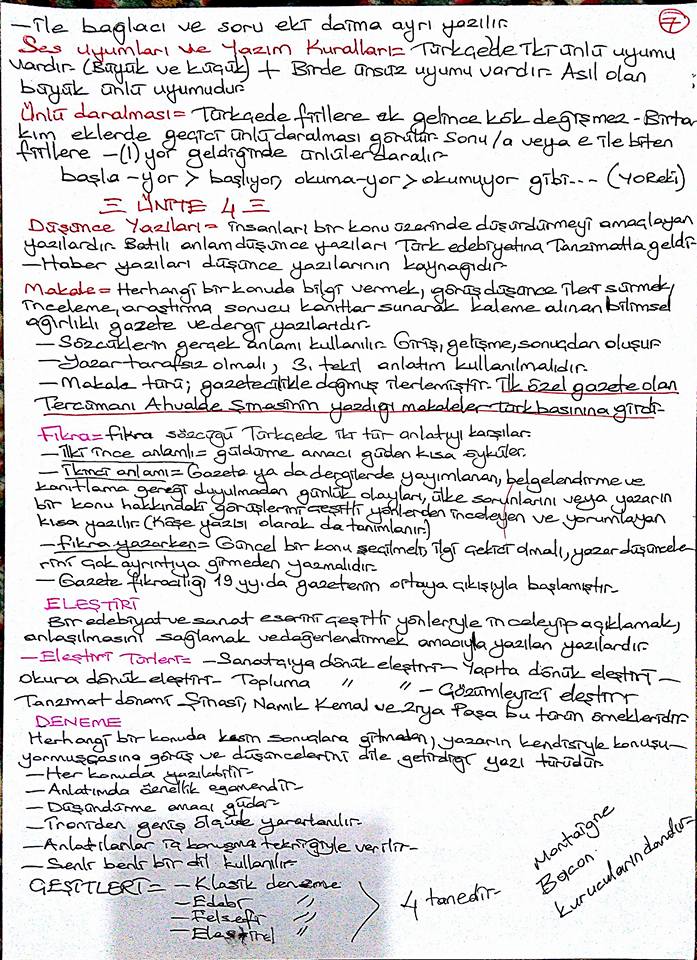 7
-İle bağlacı ve soru eki daima ayrı yazılır
Ses uyumları ve Yazım Kuralları= Türkçede iki ünlü uyumu
vardır. (Büyük ve küçük) + Birde ünsüz uyumu vardır- Asıl olan
büyük ünlü uyumudur
Ünlü daralması= Türkçede fiillere ek gelince kök değişmez - Birta
kım eklerde geçici ünlü daralması görülür sonu /a veya e ile biten
fiillere -(ı)yor geldiğinde ünlüler daralır
başla-yor > başlıyor, okuma-yor > okumuyor gibi--- (YOR eki)
ÜNİTE 4
Düşünce Yazıları= insanları bir konu üzerinde düşürdürmeyi amaçlayan
yazılardır. Batılı anlam düşünce yazıları Türk edebiyatına Tanzimatla geldi-
-Haber yazıları düşünce yazılarının kaynağıdır-
Makale= Herhangi bir konuda bilgi vermek, görüş düşünce ileri sürmek,
inceleme, araştırma sonucu kanıtlar sunarak kaleme alınan bilimsel
ağırlıklı gazete ve dergi yazılarıdır-
- Sözcüklerin gerçek anlamı kullanılır. Giriş, gelişme, sonuçdan oluşur
- Yazar tarafsız olmalı, 3. tekil anlatım kullanılmalıdır.
- Makale türü; gazetecilikle doğmuş ilerlemiştir. İlk özel gazete olan
Tercümanı Ahvalde Şinasinin yazdığı makaleler türk basınına girdi-
Fıkra= fıkra sözcüğü Türkçede iki tür anlatıyı karşılar.
- İlki ince anlamlı= güldürme amacı güden kısa öyküler.
- İkinci anlamı= Gazete ya da dergilerde yayımlanan, belgelendirme ve
kanıtlama gereği duyulmadan günlük olayları, ülke sorunlarını veya yazarın
bir konu hakkındaki görüşlerini çeşitli yönlerden inceleyen ve yorumlayan
kısa yazılır (Köşe yazısı olarak da tanımlanır)
- fıkra yazarken= Güncel bir konu seçilmeli, ilgi çekici olmalı, yazar düşüncele
rini çok ayrıntıya girmeden yazmalıdır.
- Gazete fıkracılığı 19 yy.da gazeterin ortaya çıkışıyla başlamıştır.
ELEŞTİRİ
Bir edebiyat ve sanat eserini çeşitli yönleriyle inceleyip açıklamak,
anlaşılmasını sağlamak ve değerlendirmek amacıyla yazılan yazılardır.
- Eleştiri Türleri= - Sanatçıya dönük eleştiri- Yapıta dönük eleştiri -
Okura dönük eleştiri- Topluma " " - Çözümleyici eleştiri
Tanzimat dönemi Şinasi, Namık Kemal ve Ziya Paşa bu türün örnekleridir-
DENEME
Herhangi bir konuda kesin sonuçlara gitmeden, yazarın kendisiyle konuşu-
yormuşçasına görüş ve düşüncelerini dile getirdiği yazı türüdür
- Her konuda yazılabilir-
- Anlatımda öznellik egemendir-
- Düşündürme amacı güder
- İroniden geniş ölçüde yararlanılır.
- Anlatılanlar iç konuşma tekniğiyle verilir-
- Senli benli bir dil kullanılır.
ÇEŞİTLERİ= - Klasik deneme
- Edebi "
- Felsefi "
- Eleştirel "
4 tanedir-
Montaigne
Bacon
kurucularındandır-